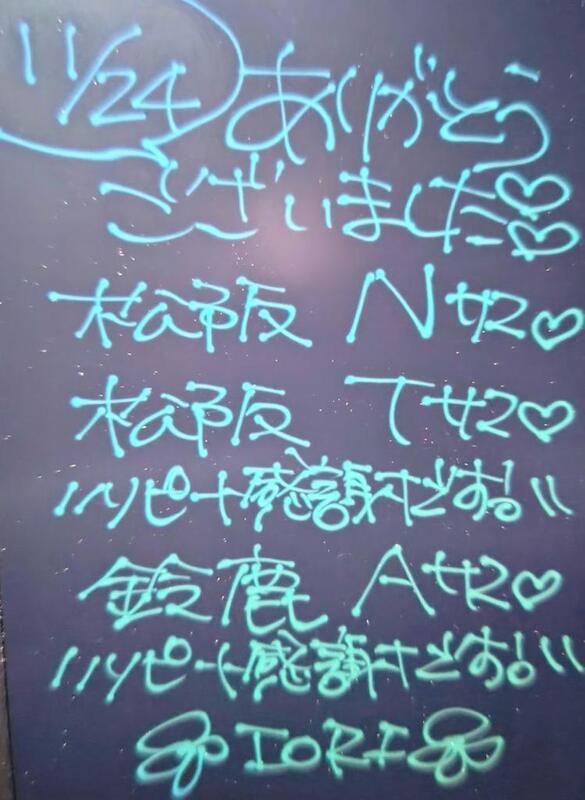 11/24 ありがとう
ございました♡♡
松阪 Nサマ♡
松阪 Tサマ♡
\\リピート感謝です!//
鈴鹿 Aサマ♡
\\リピート感謝です!//
IORI